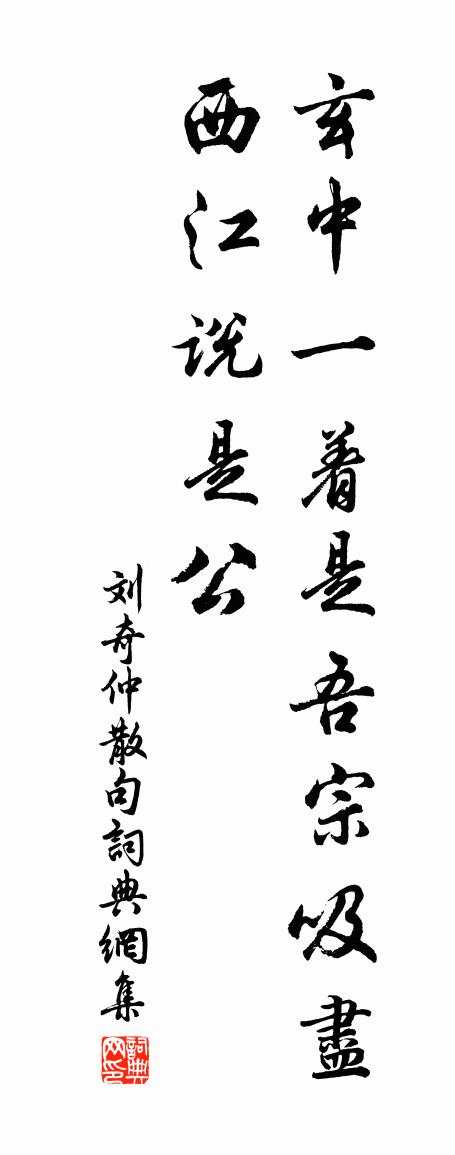 玄中一着是吾宗吸盡
西江説是公
刘奇仲散句詞典網集
詞典网印